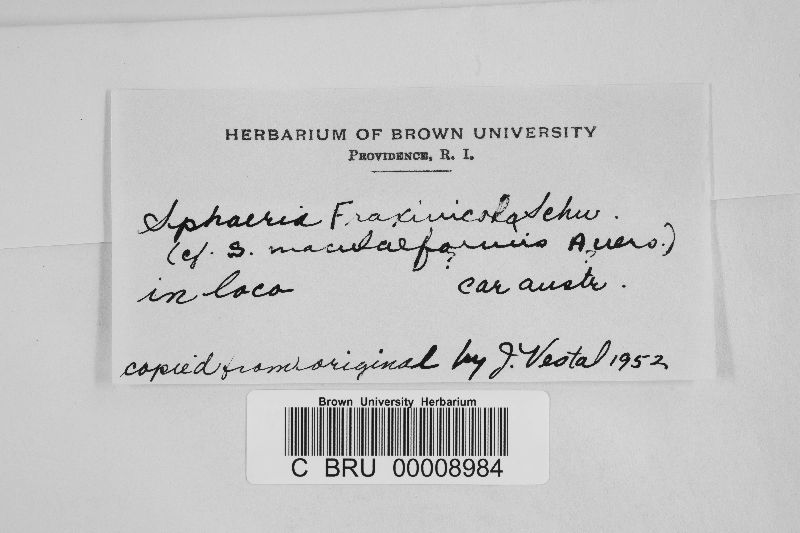 HERBARIUM OF BROWN UNIVERSITY
PROVIDENCE, R. I.
Sphaeria Fraxinicola Schw.
(cf. S. maculaeformis Auers.)
? ?
in loco car austr.
copied from original by J. Vestal 1952
Brown University Herbarium
C BRU 00008984